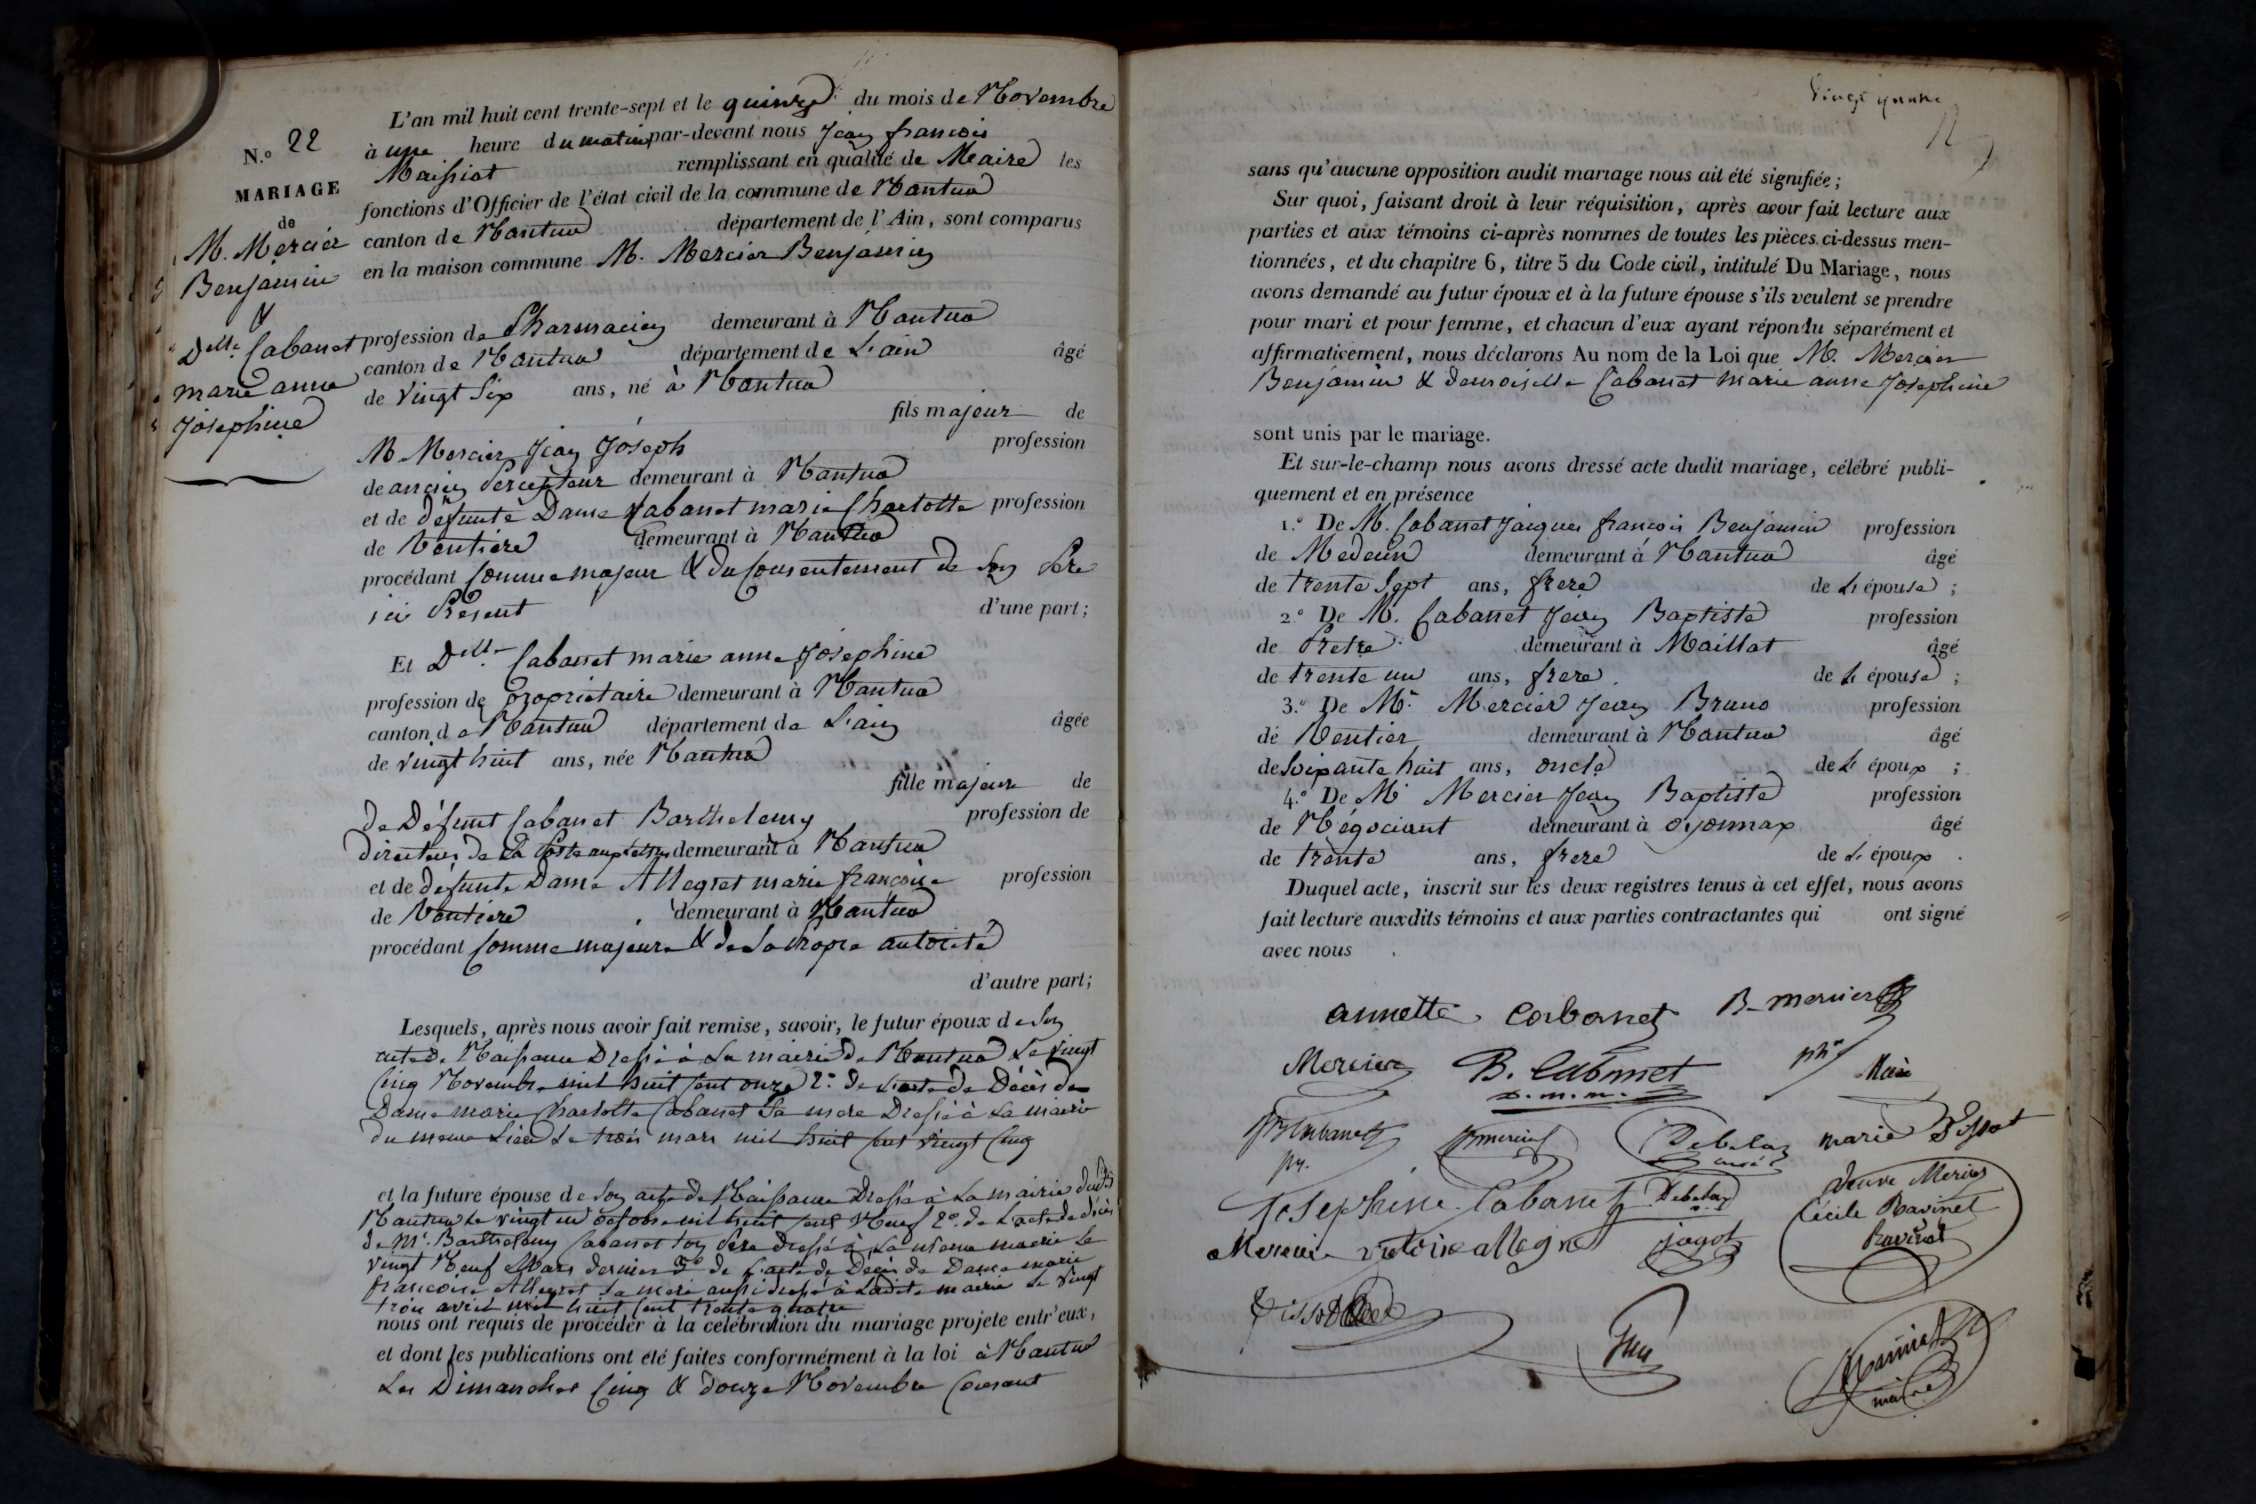 N.º 22
MARIAGE
de
M. Mercier
Benjamin
&
Delle Cabanet
marie anne
Josephine
L'an mil huit cent trente-sept et le quinze du mois de Novembre
à une heure du matin par-devant nous Jean françois
Maissiat remplissant en qualité de Maire les
fonctions d'Officier de l'état civil de la commune de Nantua
canton de Nantua département de l'Ain, sont comparus
en la maison commune M. Mercier Benjamin
profession de Pharmacien demeurant à Nantua
canton de Nantua département de L'ain âgé
de vingt six ans, né à Nantua
fils majeur de
M Mercier Jean Joseph profession
de ancien Percepteur demeurant à Nantua
et de défunte Dame Cabanet marie Charlotte profession
de Rentière demeurant à Nantua
procédant Comme majeur & du Consentement de Son Père
ici Présent d'une part;
Et Delle Cabanet marie anne Josephine
profession de propriétaire demeurant à Nantua
canton de Nantua département de L'ain âgée
de vingt huit ans, née Nantua
fille majeure de
de Défunt Cabanet Barthelemy profession de
directeur de la Poste aux lettres demeurant à Nantua
et de défunte Dame Allegret marie françoise profession
de Rentière demeurant à Nantua
procédant Comme majeure & de Sa propre autorité
d'autre part;
Lesquels, après nous avoir fait remise, savoir, le futur époux de Son
acte de Naissance Dressé à La mairie de Nantua Le vingt
Cinq Novembre mil huit Cent onze 2º de L'acte de Décès de
Dame marie Charlotte Cabanet Sa mere Dressé à La mairie
du meme Lieu Le trois mars mil huit Cent vingt Cinq
et la future épouse de Son acte de Naissance Dressé à La mairie dudit
Nantua Le vingt un octobre mil huit Cent Neuf 2º de L'acte de décès
de Mr. Barthelemy Cabanet Son Père dressé à La meme mairie Le
vingt Neuf Mars dernier 3º de L'acte de Décès de Dame marie
françoise Allegret Sa mere aussi dressé à Ladite mairie Le vingt
trois avril mil huit Cent trente quatre
nous ont requis de procéder à la célébration du mariage projeté entr'eux,
et dont les publications ont été faites conformément à la loi à Nantua
Les Dimanches Cinq & douze Novembre Courant
vingt
sans qu'aucune opposition audit mariage nous ait été signifiée;
Sur quoi, faisant droit à leur réquisition, après avoir fait lecture aux
parties et aux témoins ci-après nommés de toutes les pièces ci-dessus men-
tionnées, et du chapitre 6, titre 5 du Code civil, intitulé Du Mariage, nous
avons demandé au futur époux et à la future épouse s'ils veulent se prendre
pour mari et pour femme, et chacun d'eux ayant répondu séparément et
affirmativement, nous déclarons Au nom de la Loi que M. Mercier
Benjamin & demoiselle Cabanet marie anne Josephine
sont unis par le mariage.
Et sur-le-champ nous avons dressé acte dudit mariage, célébré publi-
quement et en présence
1.º De M. Cabanet Jacques françois Benjamin profession
de Medecin demeurant à Nantua âgé
de trente Sept ans, frere de L'épouse ;
2.º De M. Cabanet Jean Baptiste profession
de Pretre demeurant à Maillat âgé
de trente un ans, frere de L'épouse ;
3.º De Mr. Mercier Jean Bruno profession
de Rentier demeurant à Nantua âgé
de Soixante huit ans, oncle de L'époux ;
4.º De Mr Mercier Jean Baptiste profession
de Négociant demeurant à oyonnax âgé
de trente ans, frere de L'époux .
Duquel acte, inscrit sur les deux registres tenus à cet effet, nous avons
fait lecture auxdits témoins et aux parties contractantes qui ont signé
avec nous .
annette Cabanet B. mercier
Mercier B. Cabanet phn
D. m. m.
Cabanet Jmercier Debelay marie Tissot
curé
Josephine Cabanet Debelay veuve Mercier
Cécile Ravinet
Mercier victoire allegret jagot Ravinet
Tissot
maire